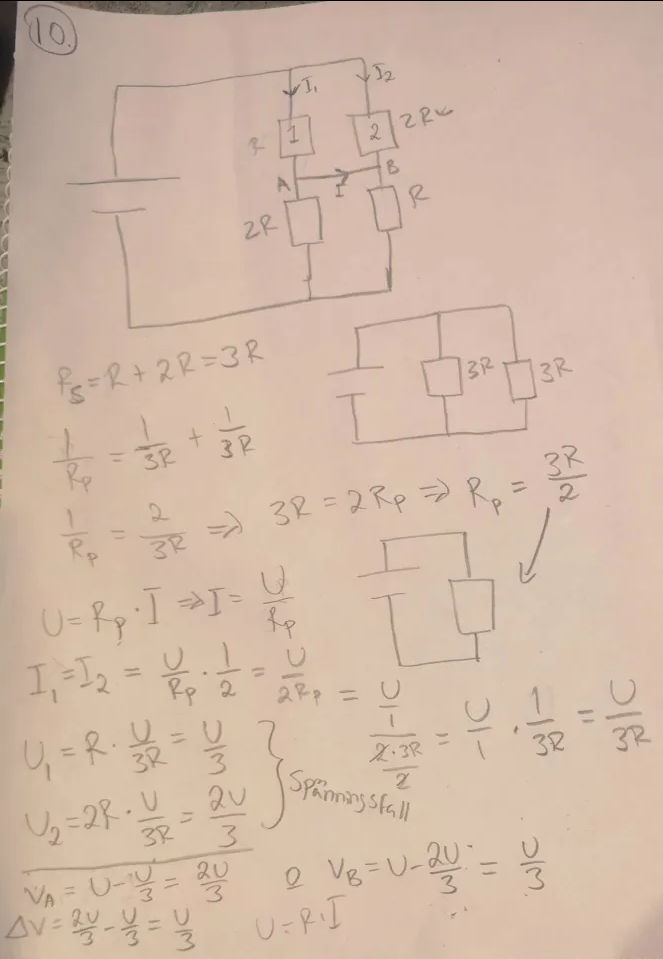 10.
I₁ I₂
R 1 2 2R
A I B
2R R
R_S = R + 2R = 3R
3R 3R
1/R_p = 1/3R + 1/3R
1/R_p = 2/3R ⇒ 3R = 2R_p ⇒ R_p = 3R/2
U = R_p · I ⇒ I = U/R_p
I₁ = I₂ = U/R_p · 1/2 = U/2R_p = (U/1)/(2·3R/2) = U/1 · 1/3R = U/3R
U₁ = R · U/3R = U/3
U₂ = 2R · U/3R = 2U/3
} Spänningsfall
V_A = U - U/3 = 2U/3 o V_B = U - 2U/3 = U/3
ΔV = 2U/3 - U/3 = U/3 U = R · I